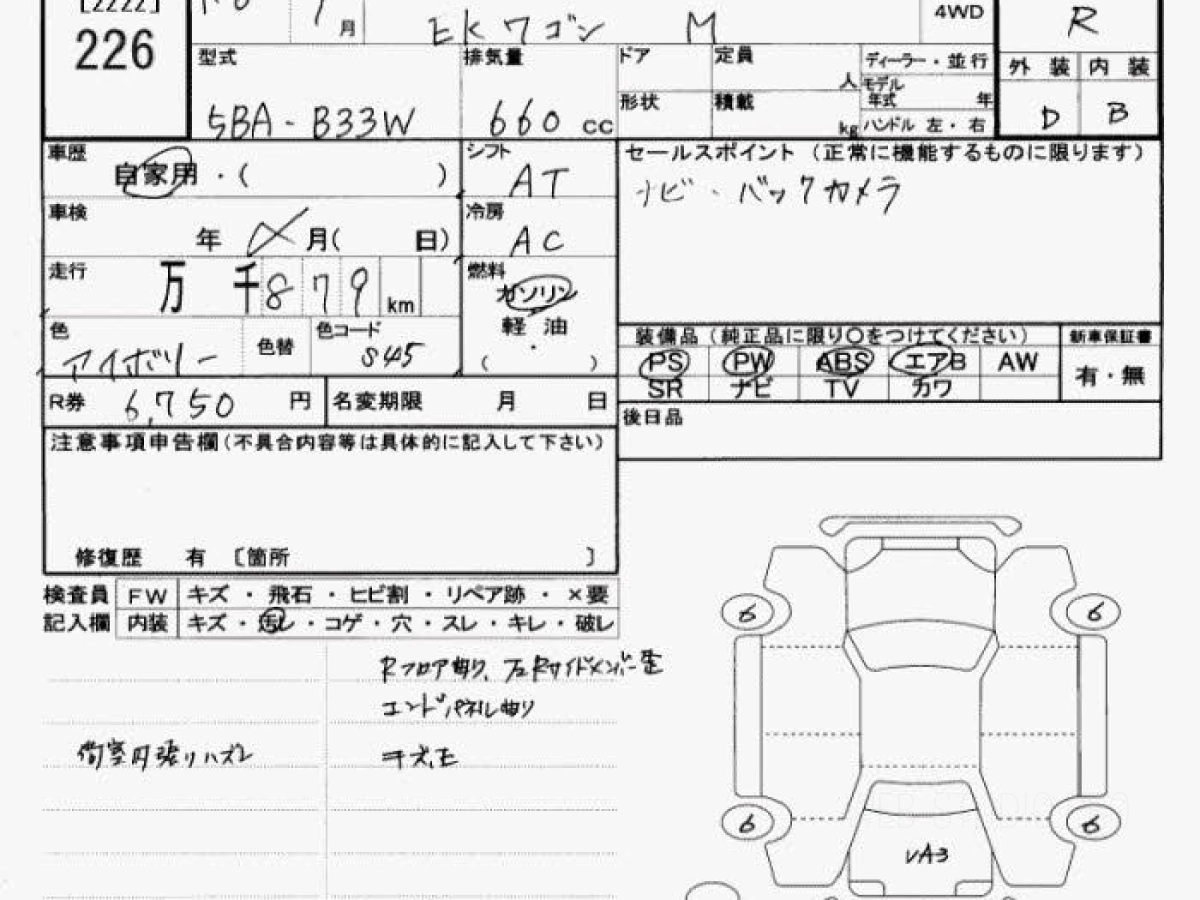 [2222]
226
月
EKワゴン M
4WD
R
型式
5BA - B33W
排気量
660 cc
ドア
定員
人
ディーラー・並行
モデル
年式 年
形状
積載
kg
ハンドル 左・右
外装 内装
D B
車歴
自家用・( )
シフト
AT
セールスポイント (正常に機能するものに限ります)
ナビ・バックカメラ
車検
年 月( 日)
冷房
AC
走行
万 千 8 7 9 km
燃料
ガソリン
軽油
( ・ )
色
アイボリー
色替
色コード
S45
装備品 (純正品に限り〇をつけてください)
新車保証書
PS PW ABS エアB AW
SR ナビ TV カワ
有・無
R券
6,750 円
名変期限 月 日
後日品
注意事項申告欄(不具合内容等は具体的に記入して下さい)
修復歴 有 〔箇所 〕
検査員 FW キズ・飛石・ヒビ割・リペア跡・×要
記入欄 内装 キズ・汚レ・コゲ・穴・スレ・キレ・破レ
Rフロア曲り、 Rサイドメンバー
エンドパネル曲り
荷室内張りハズレ
キズ、E
6 6
6 6
VA3